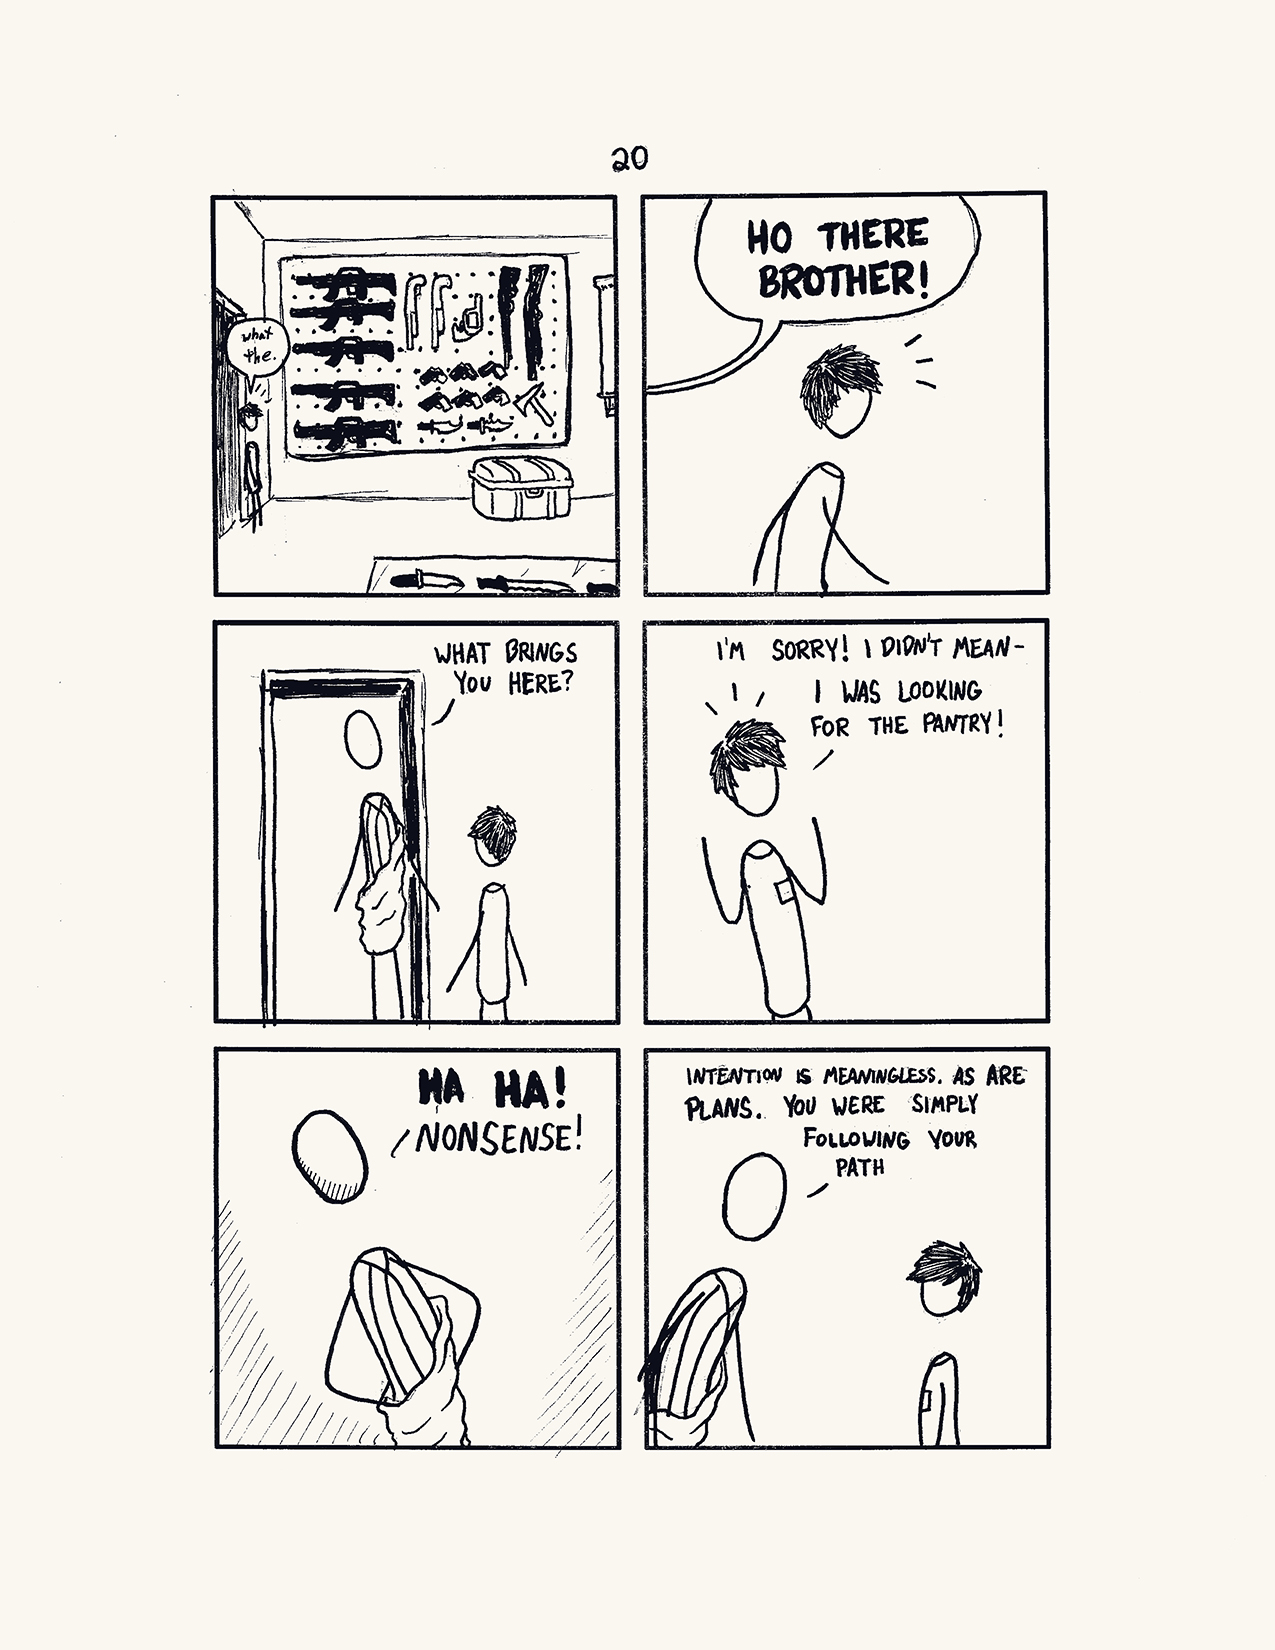 20
what
the.
HO THERE
BROTHER!
WHAT BRINGS
YOU HERE?
I'M SORRY! I DIDN'T MEAN-
I WAS LOOKING
FOR THE PANTRY!
HA HA!
NONSENSE!
INTENTION IS MEANINGLESS. AS ARE
PLANS. YOU WERE SIMPLY
FOLLOWING YOUR
PATH